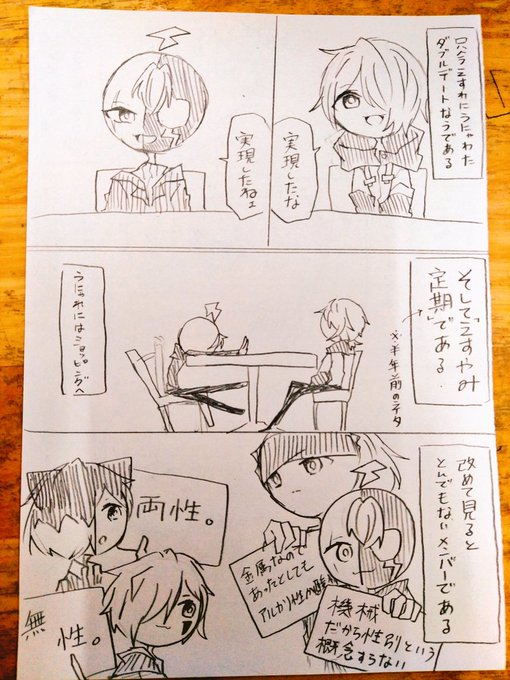 ダブルデートなうである
実現したな
実現したねェ
そして「えすやみ
定期」である.
※半年前のネタ
うにゃれにはショッピングへ
改めて見ると
とんでもないメンバーである
両性。
無
性。
金属なので
あったとしても
機械
だから性別という
概念すらない